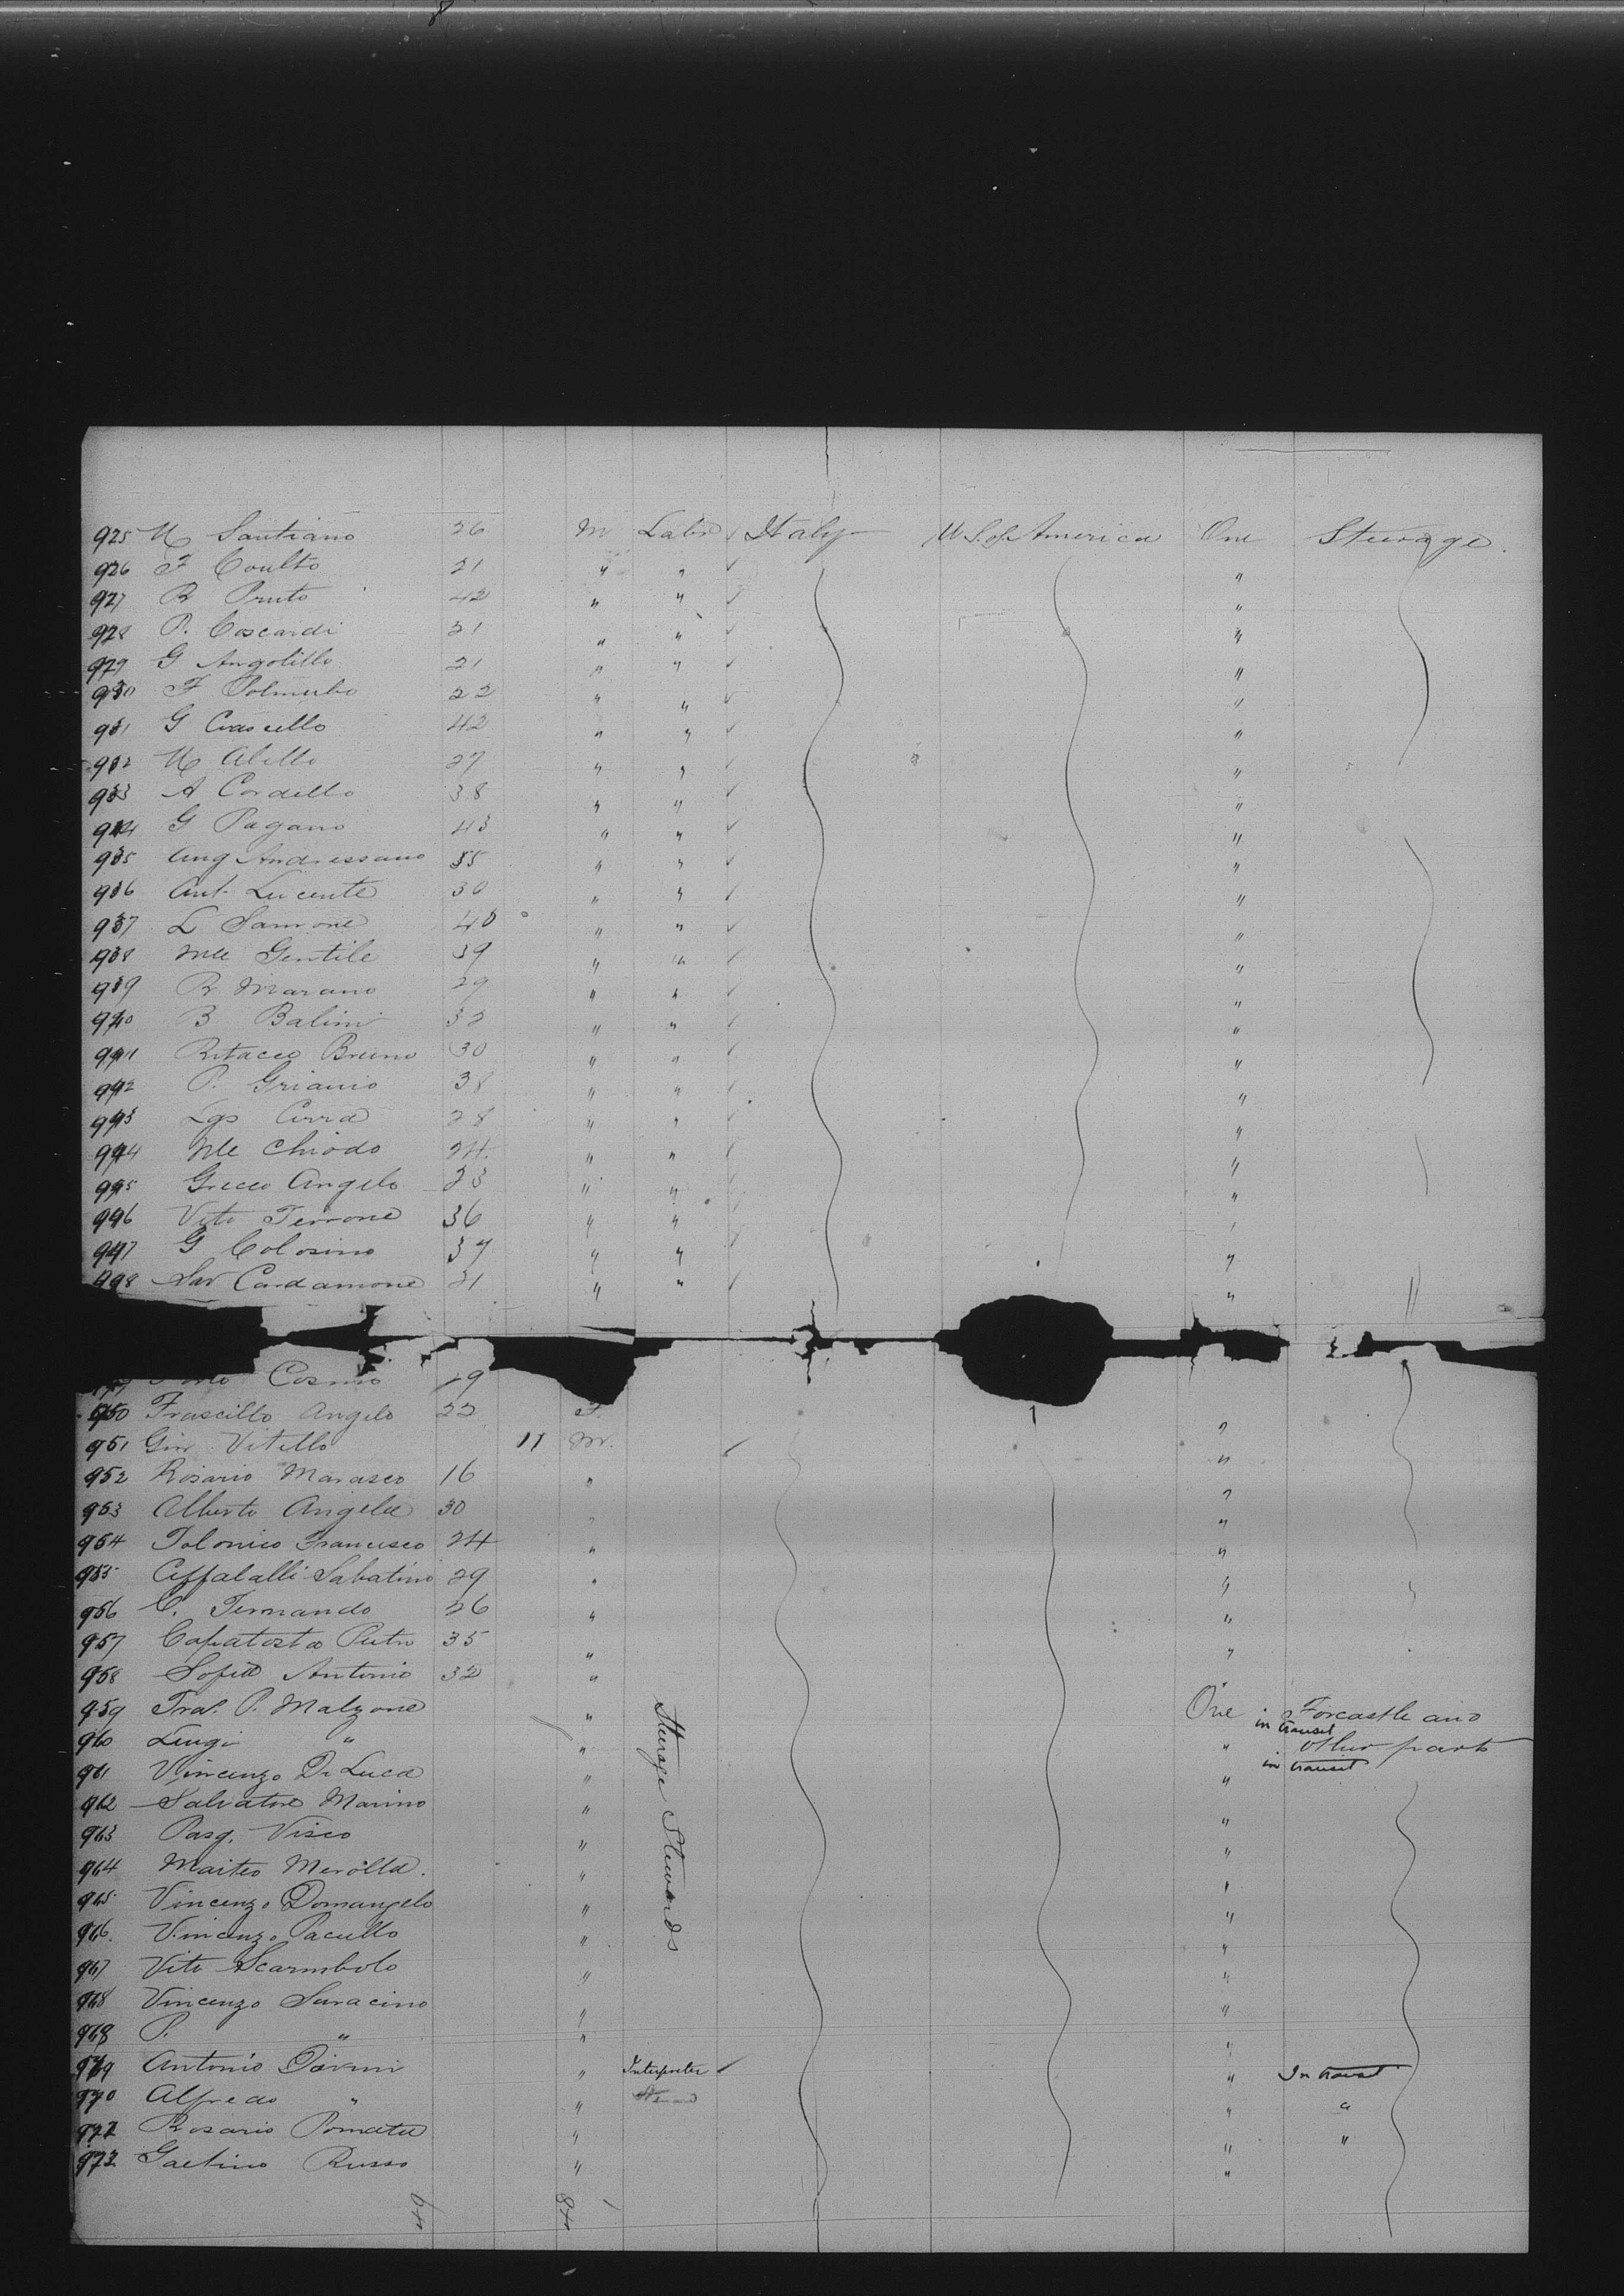 925 M Santiano 26 M Labr ✓ Italy U.S. of America One Steerage.
926 F Coulto 21 " " ✓ "
927 R Pruto 42 " " ✓ "
928 P. Coscardi 21 " " ✓ "
929 G Angotillo 21 " " ✓ "
930 F 22 " " ✓ "
931 G 42 " " ✓ "
932 M Alello 27 " " ✓ "
933 A Cordello 38 " " ✓ "
934 G Pagano 43 " " ✓ "
935 Ang Andressano 35 " " ✓ "
936 Ant. Lucente 30 " " ✓ "
937 L Samone 40 " " ✓ "
938 Mle Gentile 39 " " ✓ "
939 R Marano 29 " " ✓ "
940 B Balini 32 " " ✓ "
941 Ritacco Bruno 30 " " ✓ "
942 P. Grianio 38 " " ✓ "
943 Lgo Cirra 28 " " ✓ "
944 Nle Chiodo 24. " " ✓ "
945 Grecco Angelo 23 " " ✓ "
946 Vito Terrone 36 " " ✓ "
947 G Colosimo 37 " " ✓ "
948 Sav Cardamone 21 " " ✓ "
Cosmo 19
950 Frascillo Angelo 22 F. "
951 Gius Vitello 11 M. ✓ "
952 Rosario Marasco 16 " "
953 Alberto Angela 30 " "
954 Tolonico Francesco 24 " "
955 Ceffalalli Sabatino 29 " "
956 C. Fernando 26 " "
957 Capatosta Pietro 35 " "
958 Sofia Antonio 32 " "
959 Fra. P. Malzone " Steerage Stewards One Forcastle and
in transit
960 Luigi " " " other part
in transit
961 Vincenzo Di Luca " "
962 Salvatore Marino " "
963 Pasq. Visco " "
964 Maiteo Merolla. " "
965 Vincenzo Domangelo " "
966. Vincenzo Pacullo " "
967 Vito Scarmbolo " "
968 Vincenzo Saracino " "
968 P. " " "
969 Antonio " Interpreter ✓ " In transit
970 Alfredo " " Steward " "
971 Rosario Pomata " " "
972 Gaetino Russo " "